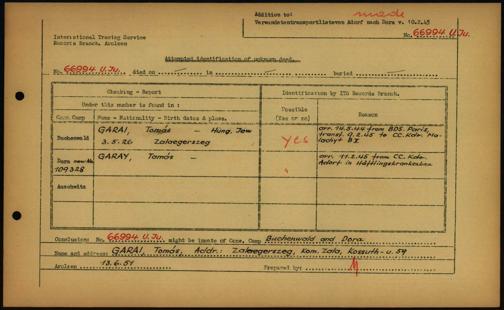 Addition to: made
Verwundetentransportlisten Adorf nach Dora v. 10.2.45
No. 66994 U.Ju.
International Tracing Service
Records Branch, Arolsen
Attempted identification of unknown dead.
No. 66994 U.Ju. died on in buried
Checking - Report
Identification by ITS Records Branch.
Under this number is found in :
Conc. Camp
Name - Nationality - Birth dates & place.
Possible
(Yes or no)
Reason
Buchenwald
GARAI, Tomás - Hung. Jew
3.5.26 Zalaegerszeg
yes
arr. 14.5.44 from BDS. Paris,
transf. 9.2.45 to CC. Kdo. Ma-
lachyt B I
Dora new No.
109328
GARAY, Tomás -
"
arr. 11.2.45 from CC. Kdo.
Adorf in Häftlingskrankenbau
Auschwitz
Conclusion: No. 66994 U.Ju. might be inmate of Conc. Camp Buchenwald and Dora.
Name and address: GARAI, Tomás, Addr.: Zalaegerszeg, Kom. Zala, Kossuth-u. 59
Arolsen 13.6.51 Prepared by: